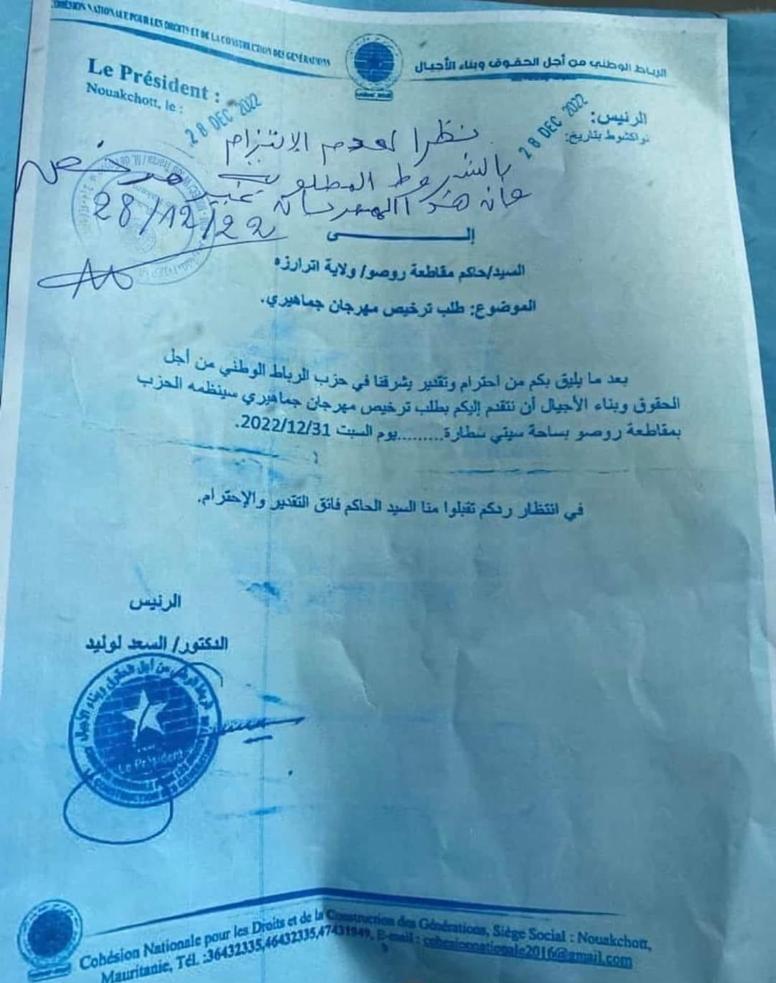 COHÉSION NATIONALE POUR LES DROITS ET DE LA CONSTRUCTION DES GÉNÉRATIONS
الرباط الوطني من أجل الحقوق وبناء الأجيال
Le Président :
Nouakchott, le :
28 DEC 2022
الرئيس:
نواكشوط بتاريخ:
28 DEC 2022
نظرا لعدم الالتزام
بالشروط المطلوبة
فإن هذا المهرجان غير مرخص
28/12/22
إلــــى
السيد/حاكم مقاطعة روصو/ ولاية اترارزه
الموضوع: طلب ترخيص مهرجان جماهيري.
بعد ما يليق بكم من احترام وتقدير يشرفنا في حزب الرباط الوطني من أجل
الحقوق وبناء الأجيال أن نتقدم إليكم بطلب ترخيص مهرجان جماهيري سينظمه الحزب
بمقاطعة روصو بساحة سيتي سطارة.........يوم السبت 2022/12/31.
في انتظار ردكم تقبلوا منا السيد الحاكم فائق التقدير والإحترام.
الرئيس
الدكتور/ السعد لوليد
الرباط الوطني من أجل الحقوق وبناء الأجيال
Le Président
Cohésion Nationale pour les Droits et de la Construction des Générations, Siège Social : Nouakchott,
Mauritanie, Tél. :36432335,46432335,47431949, E-mail : cohesionnationale2016@gmail.com